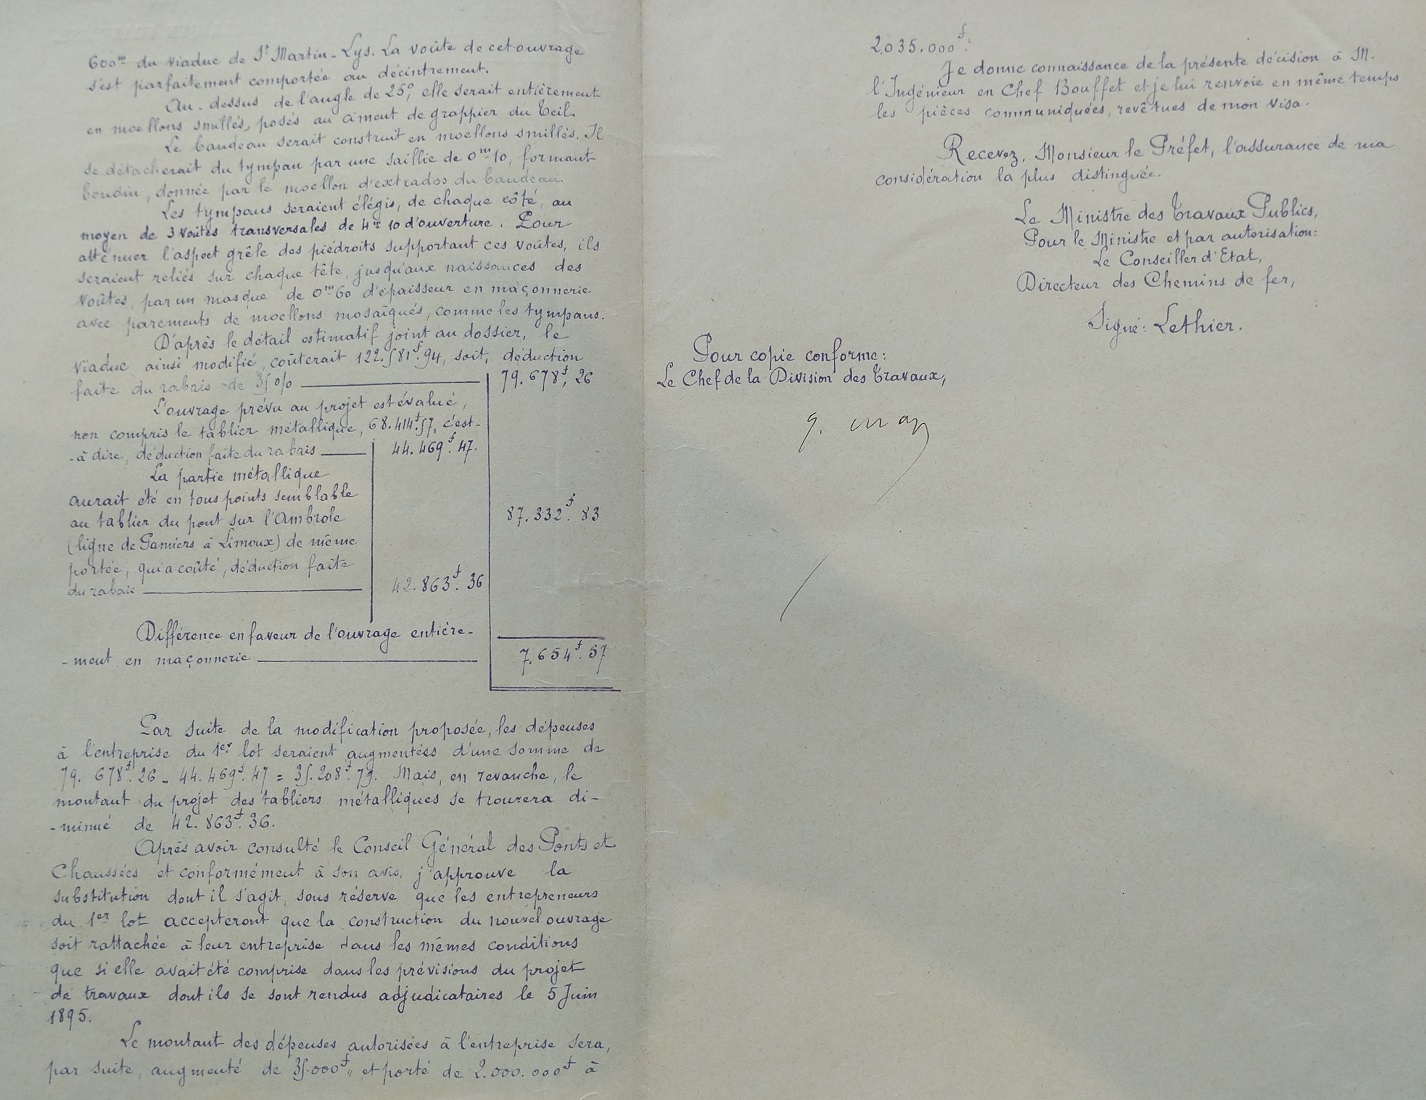 600m du viaduc de St Martin-Lys. La voûte de cet ouvrage
s'est parfaitement comportée au décintrement.
Au-dessus de l'angle de 25°, elle serait entièrement
en moellons smillés, posés au ciment de grappier du Teil.
Le bandeau serait construit en moellons smillés. Il
se détacherait du tympan par une saillie de 0m10, formant
boudin, donnée par le moellon d'extrados du bandeau.
Les tympans seraient élégis, de chaque côté, au
moyen de 3 voûtes transversales de 4m10 d'ouverture. Pour
atténuer l'aspect grêle des piédroits supportant ces voûtes, ils
seraient reliés sur chaque tête, jusqu'aux naissances des
voûtes, par un masque de 0m60 d'épaisseur en maçonnerie
avec parements de moellons mosaïqués, comme les tympans.
D'après le détail estimatif joint au dossier, le
viaduc ainsi modifié, coûterait 122.581f94, soit, déduction
faite du rabais de 35% 79.678f,26
L'ouvrage prévu au projet est évalué,
non compris le tablier métallique, 68.414f57, c'est-
-à dire, déduction faite du rabais 44.469f.47.
La partie métallique
aurait été en tous points semblable
au tablier du pont sur l'Ambrole
87.332f.83
(ligne de Pamiers à Limoux) de même
portée, qui a coûté, déduction faite
du rabais 42.863f.36
Différence en faveur de l'ouvrage entière-
-ment en maçonnerie 7.654f.57
Par suite de la modification proposée, les dépenses
à l'entreprise du 1er lot seraient augmentées d'une somme de
79.678f.26 - 44.469f.47 = 35.208f.79. Mais, en revanche, le
montant du projet des tabliers métalliques se trouvera di-
-minué de 42.863f.36.
Après avoir consulté le Conseil Général des Ponts et
Chaussées et conformément à son avis, j'approuve la
substitution dont il s'agit, sous réserve que les entrepreneurs
du 1er lot accepteront que la construction du nouvel ouvrage
soit rattachée à leur entreprise dans les mêmes conditions
que si elle avait été comprise dans les prévisions du projet
de travaux dont ils se sont rendus adjudicataires le 5 Juin
1895.
Le montant des dépenses autorisées à l'entreprise sera,
par suite, augmenté de 35.000f, et porté de 2.000.000f à
2.035.000f.
Je donne connaissance de la présente décision à M.
l'Ingénieur en Chef Bouffet et je lui renvoie en même temps
les pièces communiquées, revêtues de mon visa.
Recevez, Monsieur le Préfet, l'assurance de ma
considération la plus distinguée.
Le Ministre des Travaux Publics,
Pour le Ministre et par autorisation:
Le Conseiller d'Etat,
Directeur des Chemins de fer,
Signé: Lethier.
Pour copie conforme:
Le Chef de la Division des Travaux,